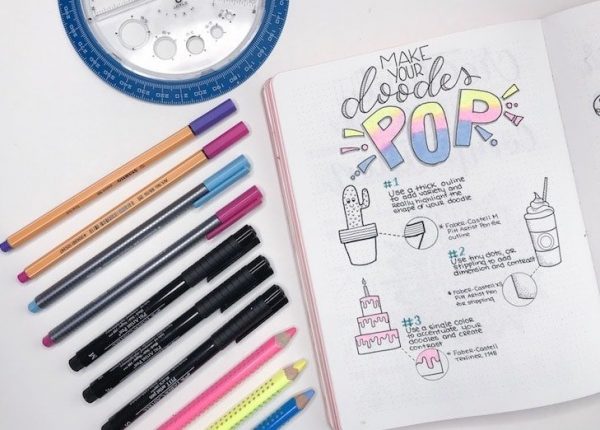 MAKE
YOUR
doodles
POP
#1
Use a thick outline
to add variety and
really highlight the
shape of your doodle
* Faber-Castell M
Pitt Artist Pen for
outline
#2
Use tiny dots, or
stippling to add
dimension and contrast
* Faber-Castell XS
Pitt Artist Pen
for stippling
#3
Use a single color
to accentuate your
doodles and create
contrast
* Faber-Castell
Textliner 1148